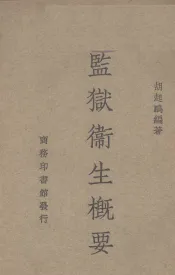 胡起鵬編著
監獄衞生概要
商務印書館發行